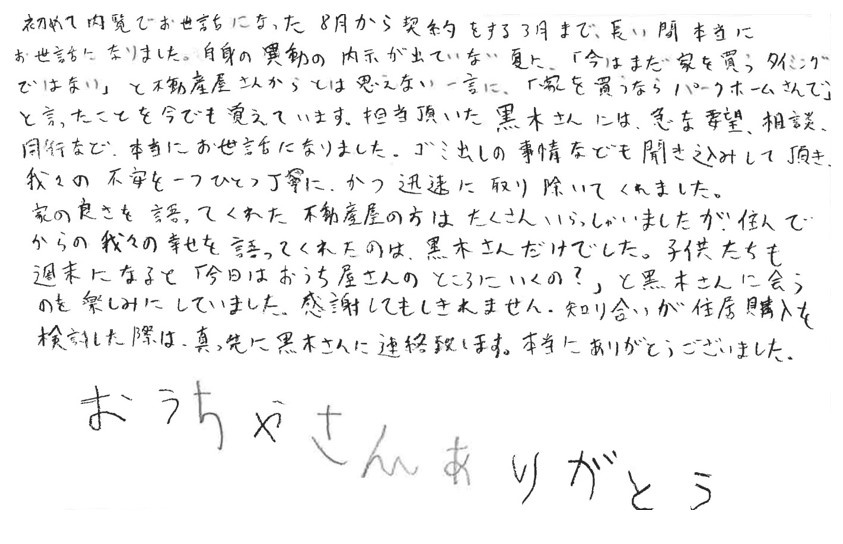 初めて内覧でお世話になった8月から契約をする3月まで、長い間本当に
お世話になりました。自身の異動の内示が出ていない夏に、「今はまだ家を買うタイミング
ではない」と不動産屋さんからとは思えない一言に、「家を買うならパークホームさんで」
と言ったことを今でも覚えています。担当頂いた黒木さんには、急な要望、相談、
同行など、本当にお世話になりました。ゴミ出しの事情なども聞き込みして頂き、
我々の不安を一つひとつ丁寧に、かつ迅速に取り除いてくれました。
家の良さを語ってくれた不動産屋の方はたくさんいらっしゃいましたが、住んで
からの我々の幸せを語ってくれたのは、黒木さんだけでした。子供たちも
週末になると「今日はおうち屋さんのところにいくの?」と黒木さんに会う
のを楽しみにしていました。感謝してもしきれません。知り合いが住居購入を
検討した際は、真っ先に黒木さんに連絡致します。本当にありがとうございました。
おうちやさんありがとう